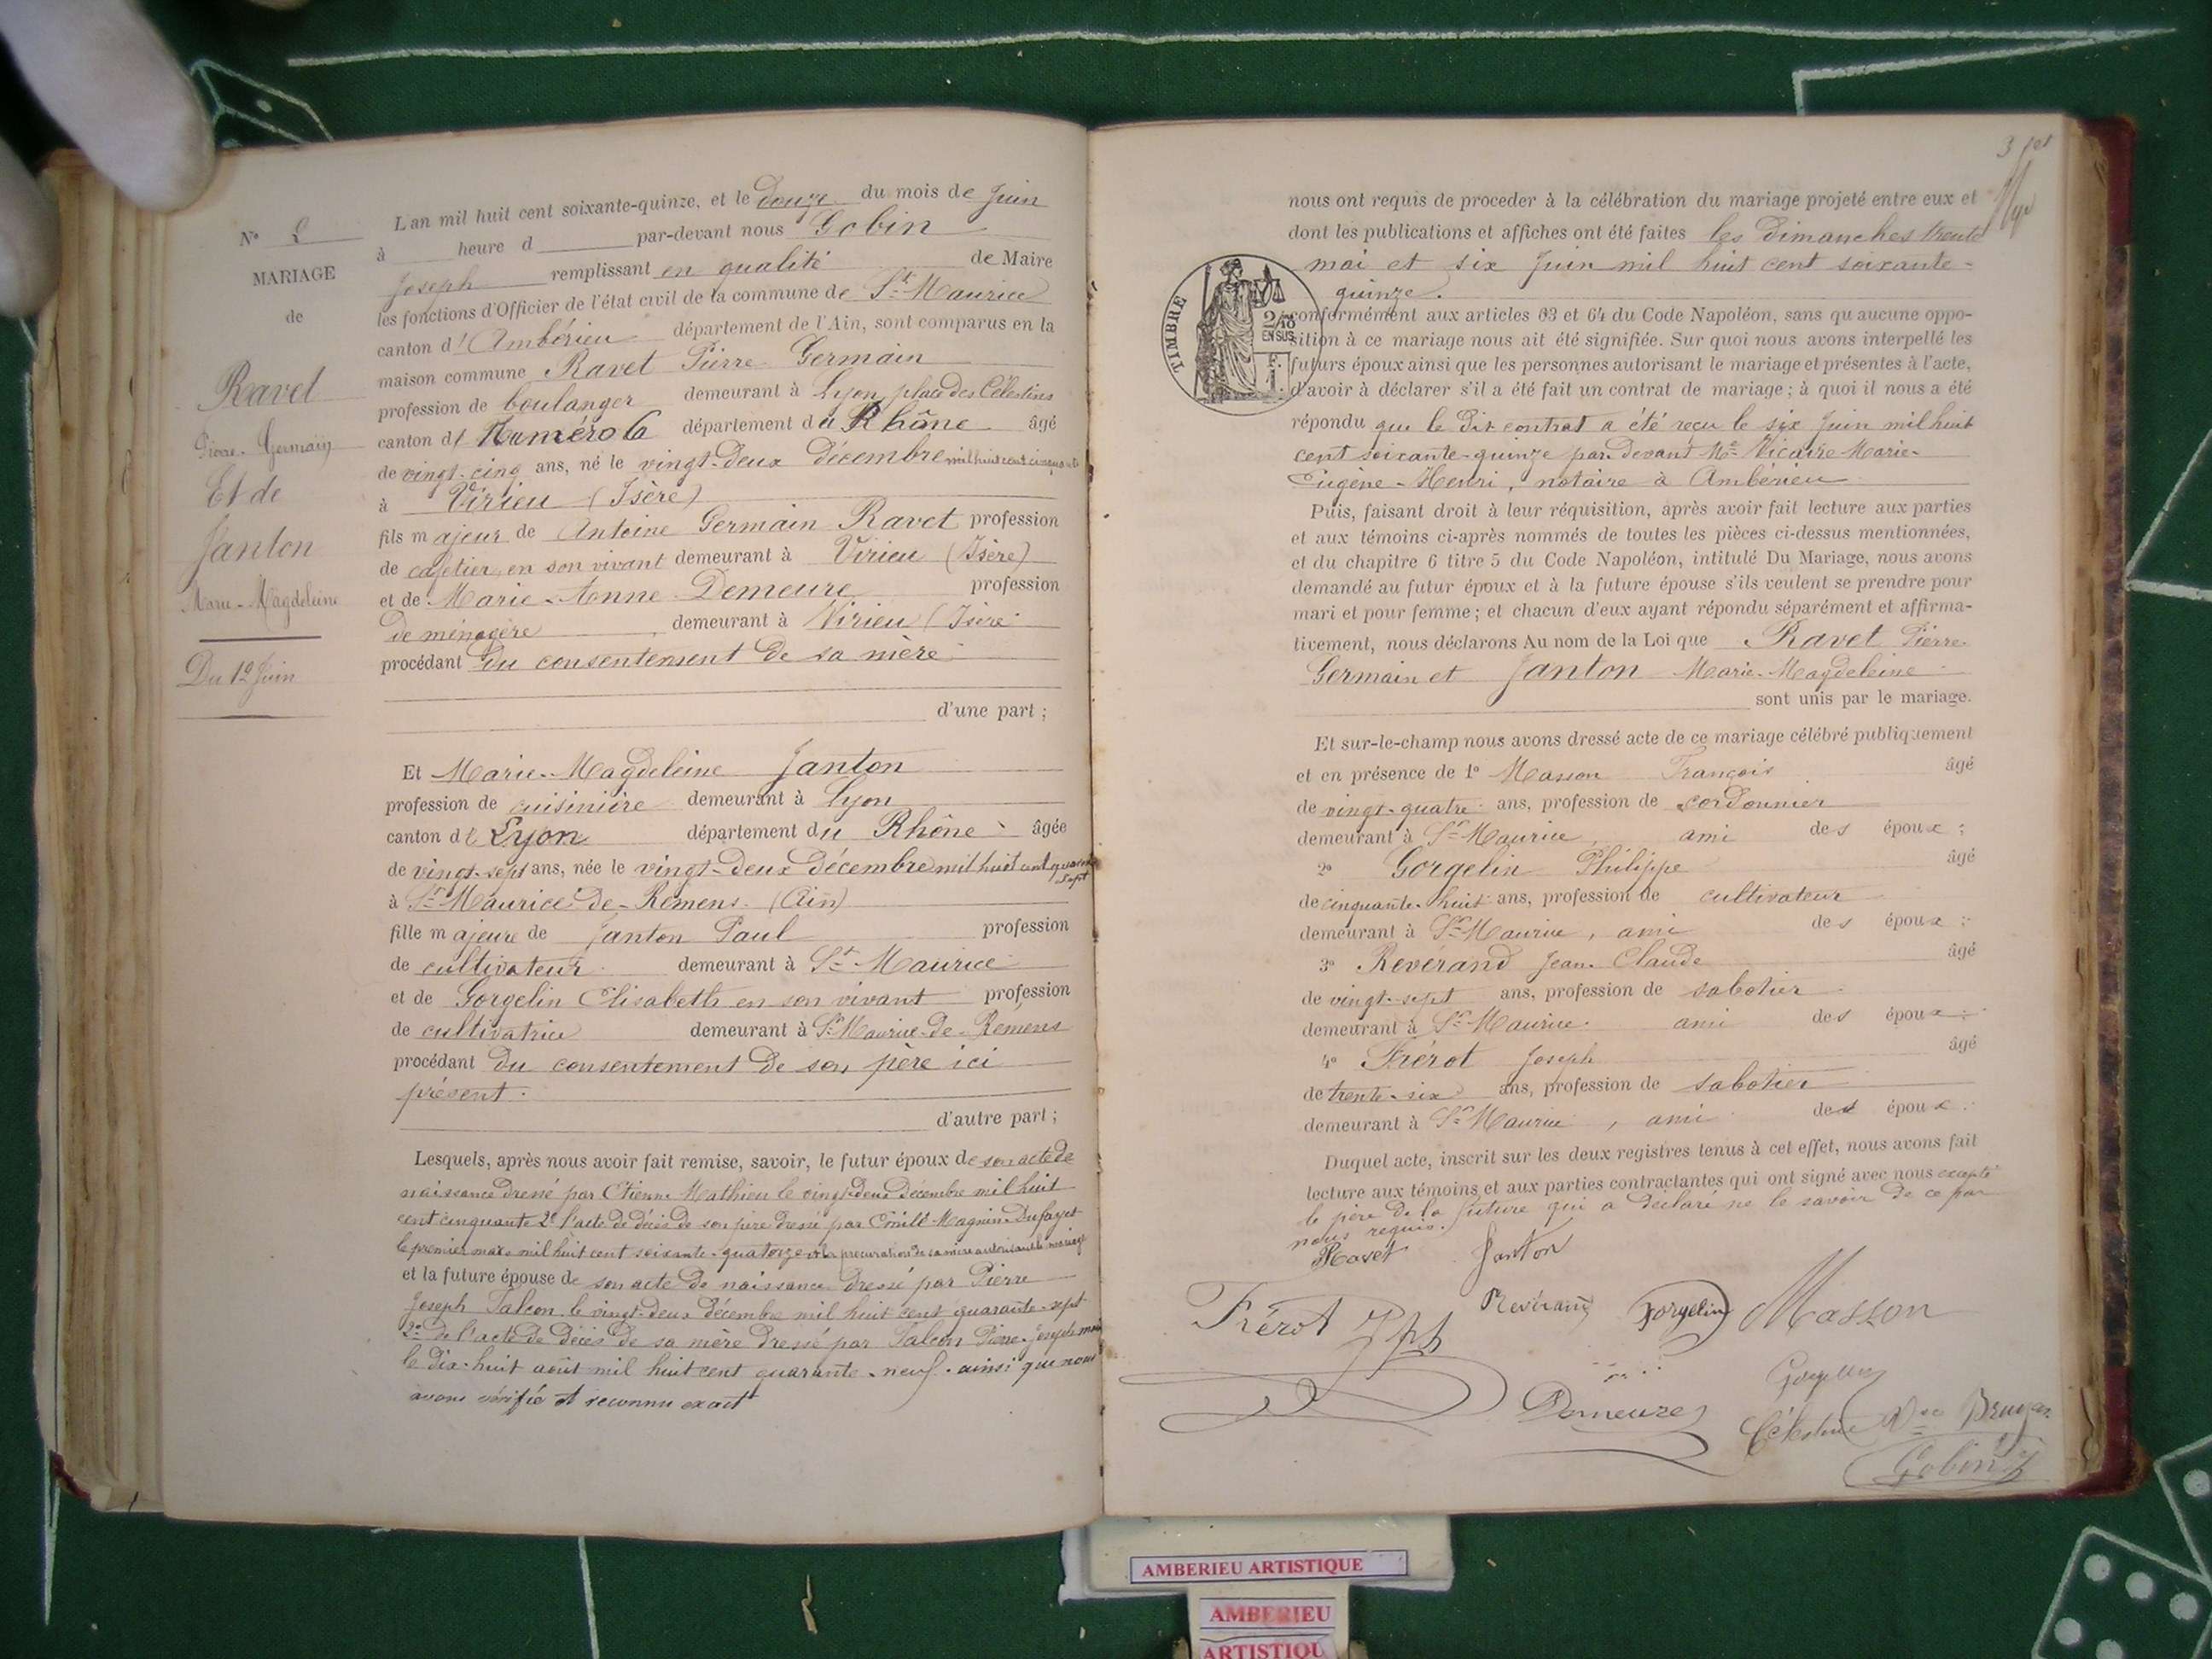 N° 2
MARIAGE
de
Ravet
Pierre-Germain
Et de
Janton
Marie-Magdeleine
Du 12 Juin
L'an mil huit cent soixante-quinze, et le douze du mois de Juin
à heure d par-devant nous Gobin
Joseph remplissant en qualité de Maire
les fonctions d'Officier de l'état civil de la commune de St-Maurice
canton d'Ambérieu département de l'Ain, sont comparus en la
maison commune Ravet Pierre Germain
profession de boulanger demeurant à Lyon, place des Célestins
canton d Numéro 6 département du Rhône âgé
de vingt-cinq ans, né le vingt-deux décembre mil huit cent cinquante
à Virieu (Isère)
fils majeur de Antoine Germain Ravet profession
de cafetier, en son vivant demeurant à Virieu (Isère)
et de Marie-Anne Demeure profession
de ménagère demeurant à Virieu (Isère
procédant du consentement de sa mère
d'une part ;
Et Marie-Magdeleine Janton
profession de cuisinière demeurant à Lyon
canton de Lyon département du Rhône âgée
de vingt-sept ans, née le vingt-deux décembre mil huit cent quarante
sept
à St-Maurice-de-Remens (Ain)
fille majeure de Janton Paul profession
de cultivateur demeurant à St-Maurice
et de Gorgelin Elisabeth en son vivant profession
de cultivatrice demeurant à St-Maurice-de-Remens
procédant du consentement de son père ici
présent.
d'autre part ;
Lesquels, après nous avoir fait remise, savoir, le futur époux de son acte de
naissance dressé par Etienne Mathieu le vingt-deux décembre mil huit
cent cinquante 2° l'acte de décès de son père dressé par Magnin-Dufayet
le premier mars mil huit cent soixante-quatorze et la procuration de sa mère autorisant le mariage
et la future épouse de son acte de naissance dressé par Pierre
Joseph Falcon le vingt-deux décembre mil huit cent quarante-sept
2° de l'acte de décès de sa mère dressé par Falcon Pierre-Joseph
le dix-huit août mil huit cent quarante-neuf. ainsi que nous
avons vérifié et reconnu exact
3
nous ont requis de proceder à la célébration du mariage projeté entre eux et
dont les publications et affiches ont été faites les Dimanches trente
mai et six Juin mil huit cent soixante-
quinze.
TIMBRE
2/10
EN SUS
F.
1
conformément aux articles 63 et 64 du Code Napoléon, sans qu'aucune oppo-
sition à ce mariage nous ait été signifiée. Sur quoi nous avons interpellé les
futurs époux ainsi que les personnes autorisant le mariage et présentes à l'acte,
d'avoir à déclarer s'il a été fait un contrat de mariage ; à quoi il nous a été
répondu que le dit contrat a été reçu le six Juin mil huit
cent soixante-quinze par-devant Me Vicaire Marie-
Eugène-Henri, notaire à Ambérieu
Puis, faisant droit à leur réquisition, après avoir fait lecture aux parties
et aux témoins ci-après nommés de toutes les pièces ci-dessus mentionnées,
et du chapitre 6 titre 5 du Code Napoléon, intitulé Du Mariage, nous avons
demandé au futur époux et à la future épouse s'ils veulent se prendre pour
mari et pour femme ; et chacun d'eux ayant répondu séparément et affirma-
tivement, nous déclarons Au nom de la Loi que Ravet Pierre
Germain et Janton Marie-Magdeleine
sont unis par le mariage.
Et sur-le-champ nous avons dressé acte de ce mariage célébré publiquement
et en présence de 1° Masson François âgé
de vingt-quatre ans, profession de cordonnier
demeurant à St-Maurice, ami des époux ;
2° Gorgelin Philippe âgé
de cinquante-huit ans, profession de cultivateur
demeurant à St-Maurice, ami des époux ;
3° Revérand Jean-Claude âgé
de vingt-sept ans, profession de sabotier
demeurant à St-Maurice. ami des époux ;
4° Frérot Joseph âgé
de trente-six ans, profession de sabotier
demeurant à St-Maurice, ami des époux ;
Duquel acte, inscrit sur les deux registres tenus à cet effet, nous avons fait
lecture aux témoins et aux parties contractantes qui ont signé avec nous excepté
le père de la future qui a déclaré ne le savoir de ce par
nous requis.
Ravet Janton
Frérot Jph Revérand Gorgelin Masson
Demeure
Célestine Vve
Gobin
AMBERIEU ARTISTIQUE
AMBERIEU
ARTISTIQU